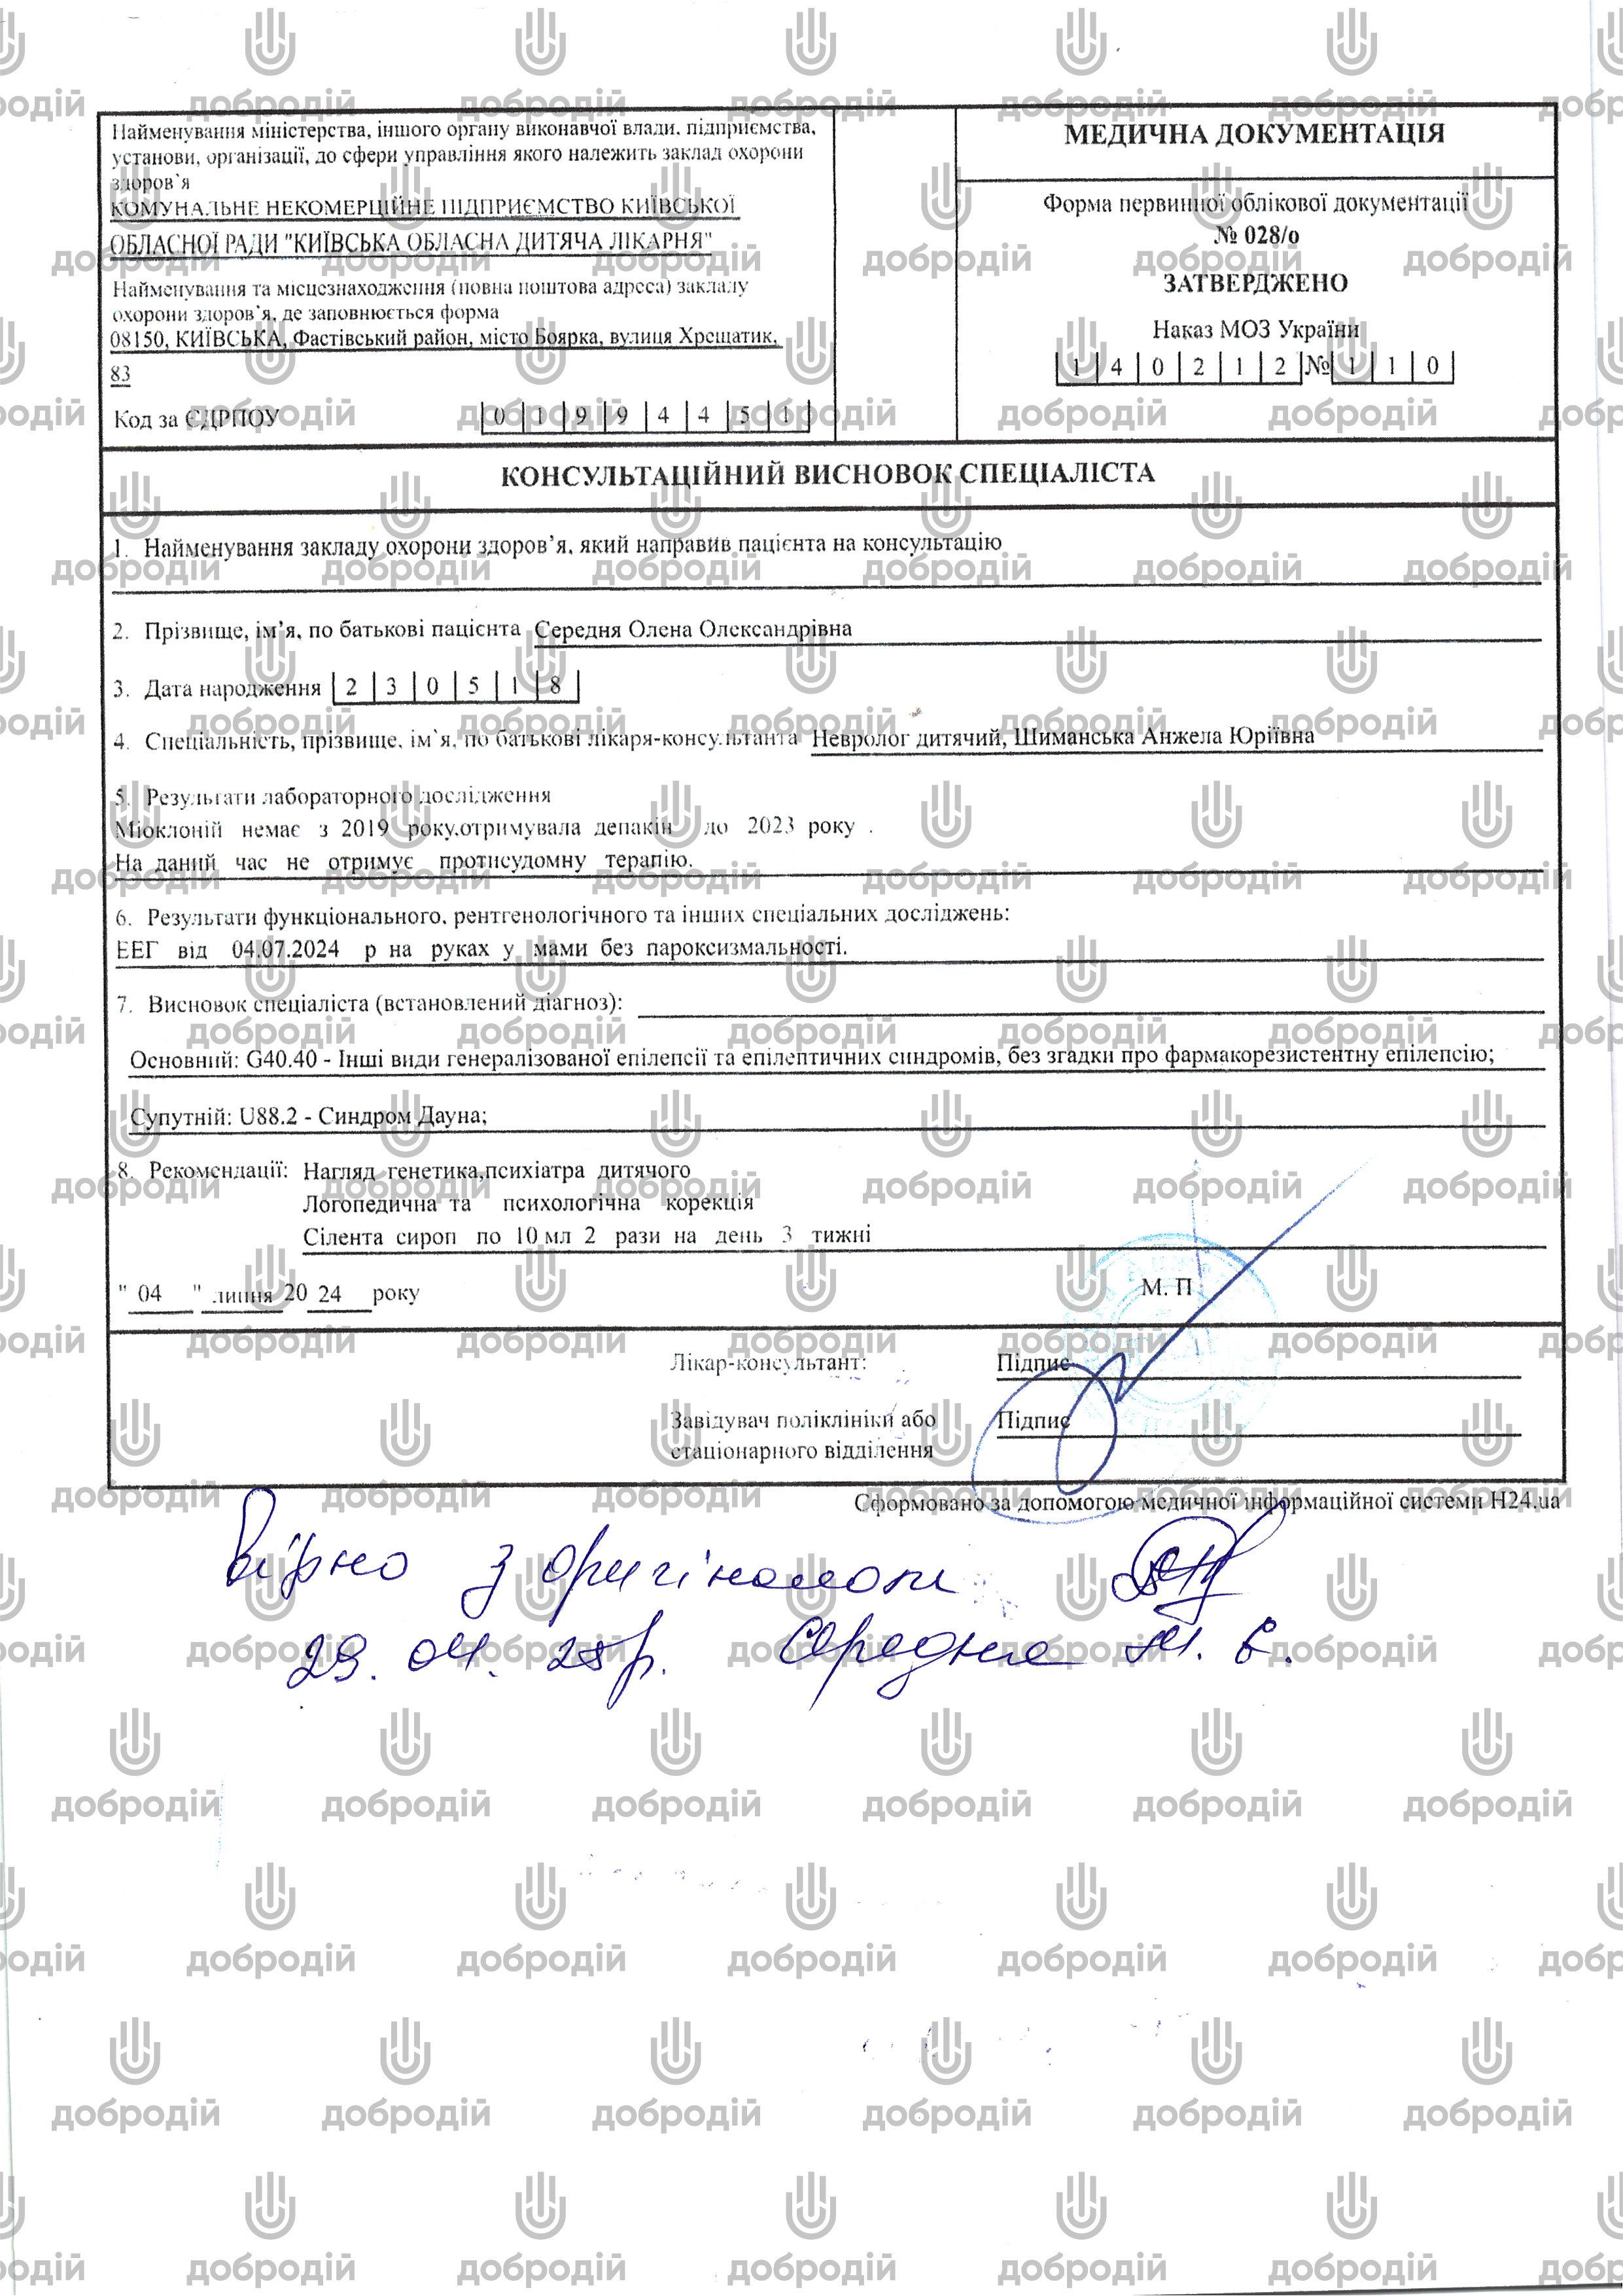 Найменування міністерства, іншого органу виконавчої влади, підприємства,
установи, організації, до сфери управління якого належить заклад охорони
здоров`я
КОМУНАЛЬНЕ НЕКОМЕРЦІЙНЕ ПІДПРИЄМСТВО КИЇВСЬКОЇ
ОБЛАСНОЇ РАДИ "КИЇВСЬКА ОБЛАСНА ДИТЯЧА ЛІКАРНЯ"
Найменування та місцезнаходження (повна поштова адреса) закладу
охорони здоров`я, де заповнюється форма
08150, КИЇВСЬКА, Фастівський район, місто Боярка, вулиця Хрещатик,
83
Код за ЄДРПОУ 0 1 9 9 4 4 5 1
МЕДИЧНА ДОКУМЕНТАЦІЯ
Форма первинної облікової документації
№ 028/о
ЗАТВЕРДЖЕНО
Наказ МОЗ України
1 4 0 2 1 2 № 1 1 0
КОНСУЛЬТАЦІЙНИЙ ВИСНОВОК СПЕЦІАЛІСТА
1. Найменування закладу охорони здоров’я, який направив пацієнта на консультацію
2. Прізвище, ім’я, по батькові пацієнта Середня Олена Олександрівна
3. Дата народження 2 3 0 5 1 8
4. Спеціальність, прізвище, ім`я, по батькові лікаря-консультанта Невролог дитячий, Шиманська Анжела Юріївна
5. Результати лабораторного дослідження
Міоклоній немає з 2019 року,отримувала депакін до 2023 року .
На даний час не отримує протисудомну терапію.
6. Результати функціонального, рентгенологічного та інших спеціальних досліджень:
ЕЕГ від 04.07.2024 р на руках у мами без пароксизмальності.
7. Висновок спеціаліста (встановлений діагноз):
Основний: G40.40 - Інші види генералізованої епілепсії та епілептичних синдромів, без згадки про фармакорезистентну епілепсію;
Супутній: U88.2 - Синдром Дауна;
8. Рекомендації: Нагляд генетика,психіатра дитячого
Логопедична та психологічна корекція
Сілента сироп по 10 мл 2 рази на день 3 тижні
" 04 " липня 20 24 року
М. П
Лікар-консультант: Підпис
Завідувач поліклініки або Підпис
стаціонарного відділення
Сформовано за допомогою медичної інформаційної системи H24.ua
Вірно з оригіналом
29. 04. 25р. Середня М. В.
добродій